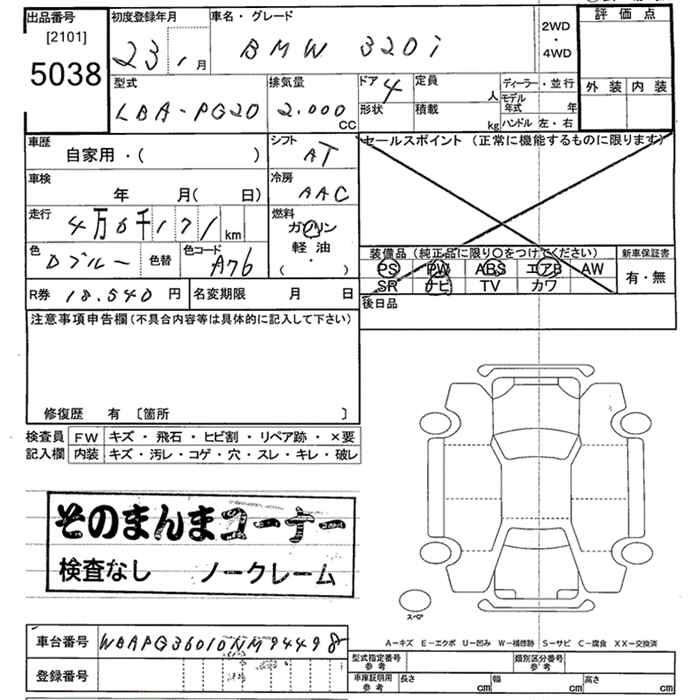 出品番号
[2101]
5038
初度登録年月
23 年 1 月
車名・グレード
BMW 320i
2WD
・
4WD
評価点
外装 内装
型式
LBA-PG20
排気量
2.000
CC
ドア 4
形状
定員
人
積載
kg
ディーラー・並行
モデル
年式 年
ハンドル 左・右
車歴
自家用・( )
シフト
AT
セールスポイント (正常に機能するものに限ります)
車検
年 月( 日)
冷房
AAC
走行
4万6千171km
燃料
ガソリン
軽油
( ・ )
色
Dブルー
色替
色コード
A76
装備品 (純正品に限り○をつけてください)
PS PW ABS エアB AW
SR ナビ TV カワ
新車保証書
有・無
R券 18.540円
名変期限 月 日
後日品
注意事項申告欄 (不具合内容等は具体的に記入して下さい)
修復歴 有 〔箇所 〕
検査員
記入欄
FW キズ・飛石・ヒビ割・リペア跡・×要
内装 キズ・汚レ・コゲ・穴・スレ・キレ・破レ
そのまんまコーナー
検査なし ノークレーム
スペア
A-キズ E-エクボ U-凹み W-補修跡 S-サビ C-腐食 XX-交換済
車台番号 WBAPG36010NM94498
登録番号
型式指定番号
参考
類別区分番号
参考
車庫証明用
参考
長さ cm
幅 cm
高さ cm